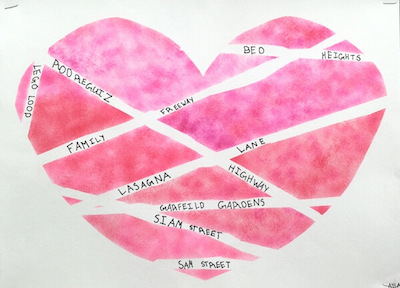 BED
HEIGHTS
RODREGUIZ
LEGO LOOP
FREEWAY
FAMILY
LANE
LASAGNA
HIGHWAY
GARFEILD GARDENS
SIAM STREET
SAM STREET